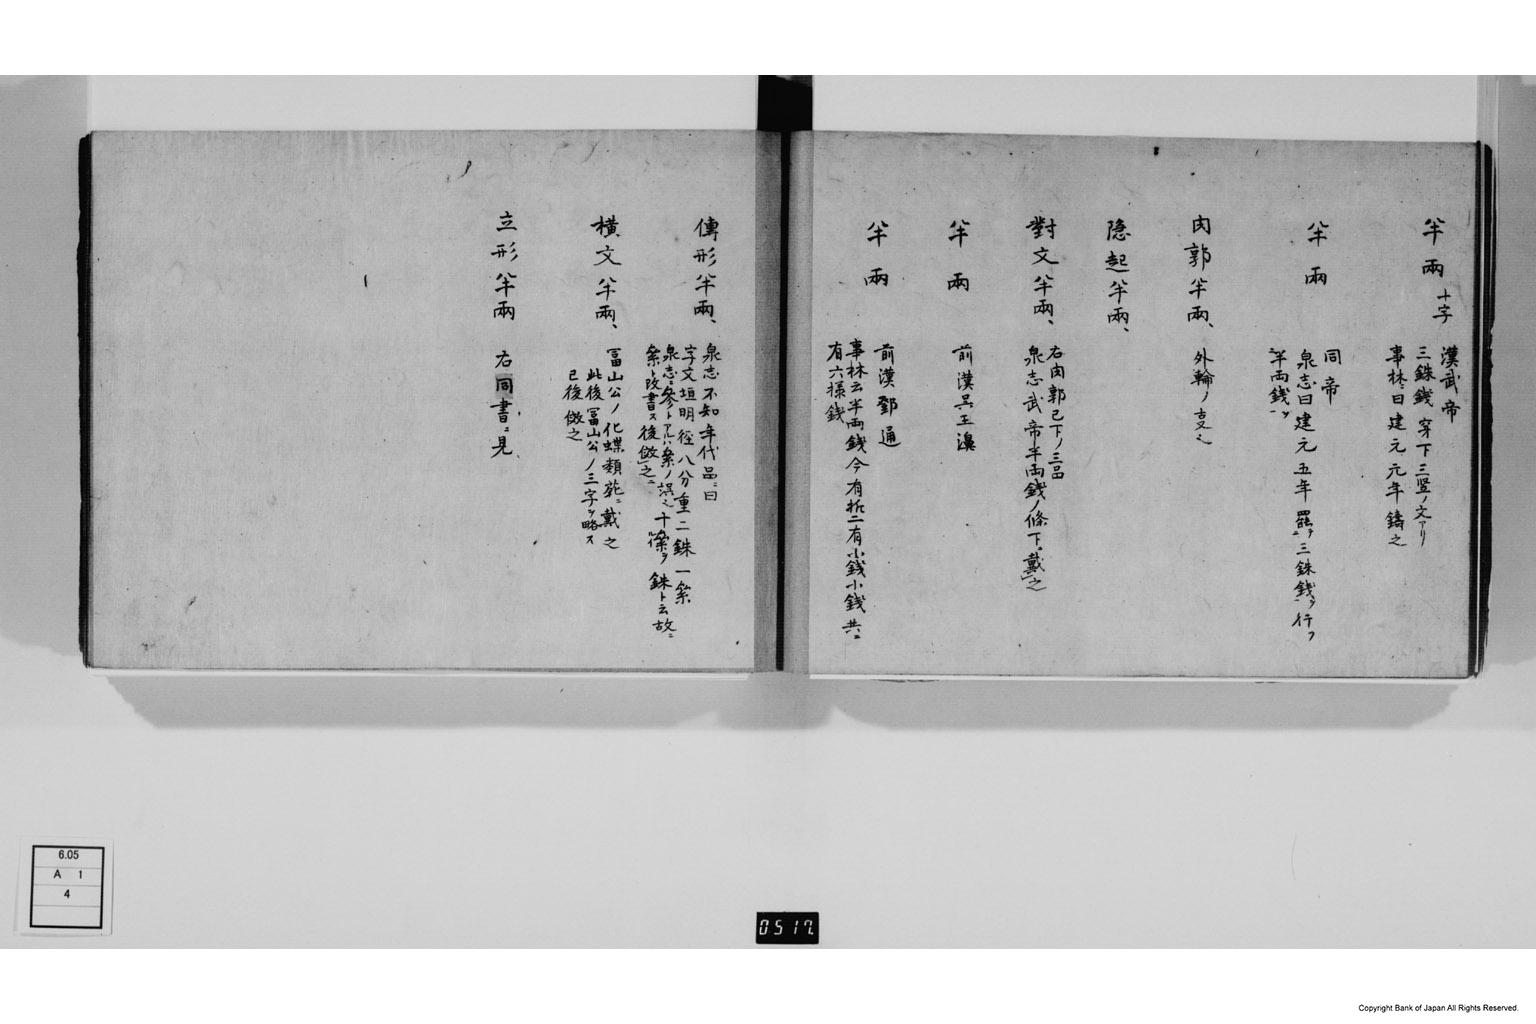 半兩 十字
漢武帝
三銖錢 穿下三竪ノ文アリ
事林ニ曰建元元年鑄之
半兩
同帝
泉志曰建元五年罷ヲ三銖錢ヲ行フ
半両錢ヲ
肉郭半兩、 外輪ノ支之
隠起半兩、
對文半兩、
右肉郭已下ノ三品
泉志武帝半両錢ノ條下ニ戴之
半兩 前漢呉王濞
半兩
前漢鄧通
事林云半両錢今有折二有小錢小錢共ニ
有六様錢
傳形半兩、
泉志不知年代品ニ曰
字文垣明徑八分重二銖一絫
泉志ニ參トアルハ絫ノ誤之十絫ヲ銖ト云故ニ
絫ト改書ス後倣之ニ
横文半兩、
冨山公ノ化蝶類苑ニ戴之
此後冨山公ノ三字ヲ略ス
已後倣之
立形半兩 右同書ニ見
6.05
A 1
4
0517
Copyright Bank of Japan All Rights Reserved.